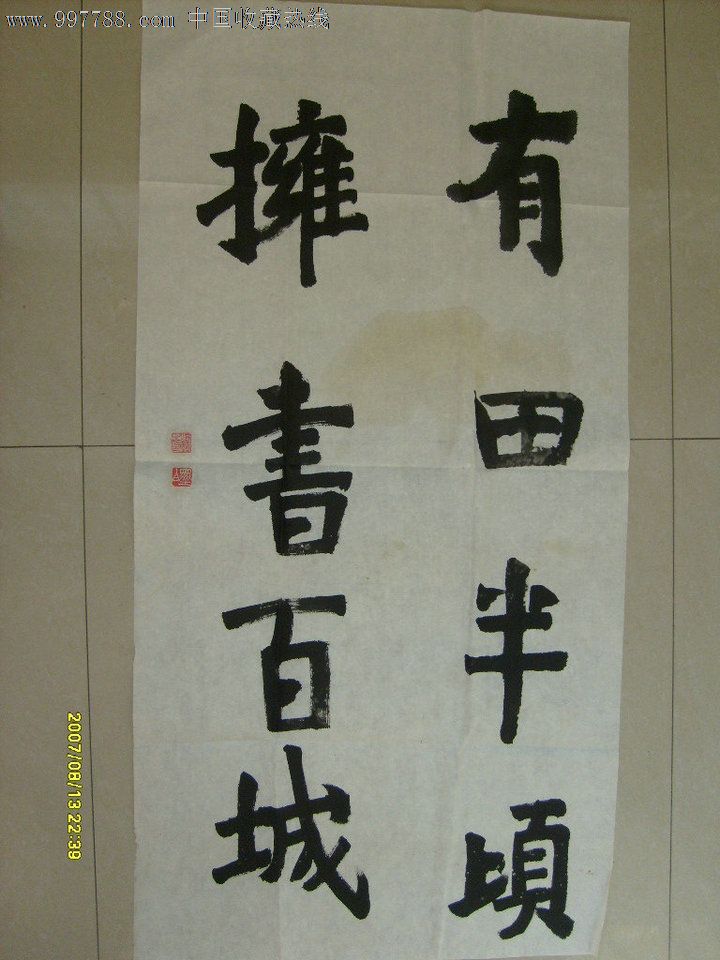 www.997788.com 中国收藏热线
有田半頃
擁書百城
2007/08/13 22:39